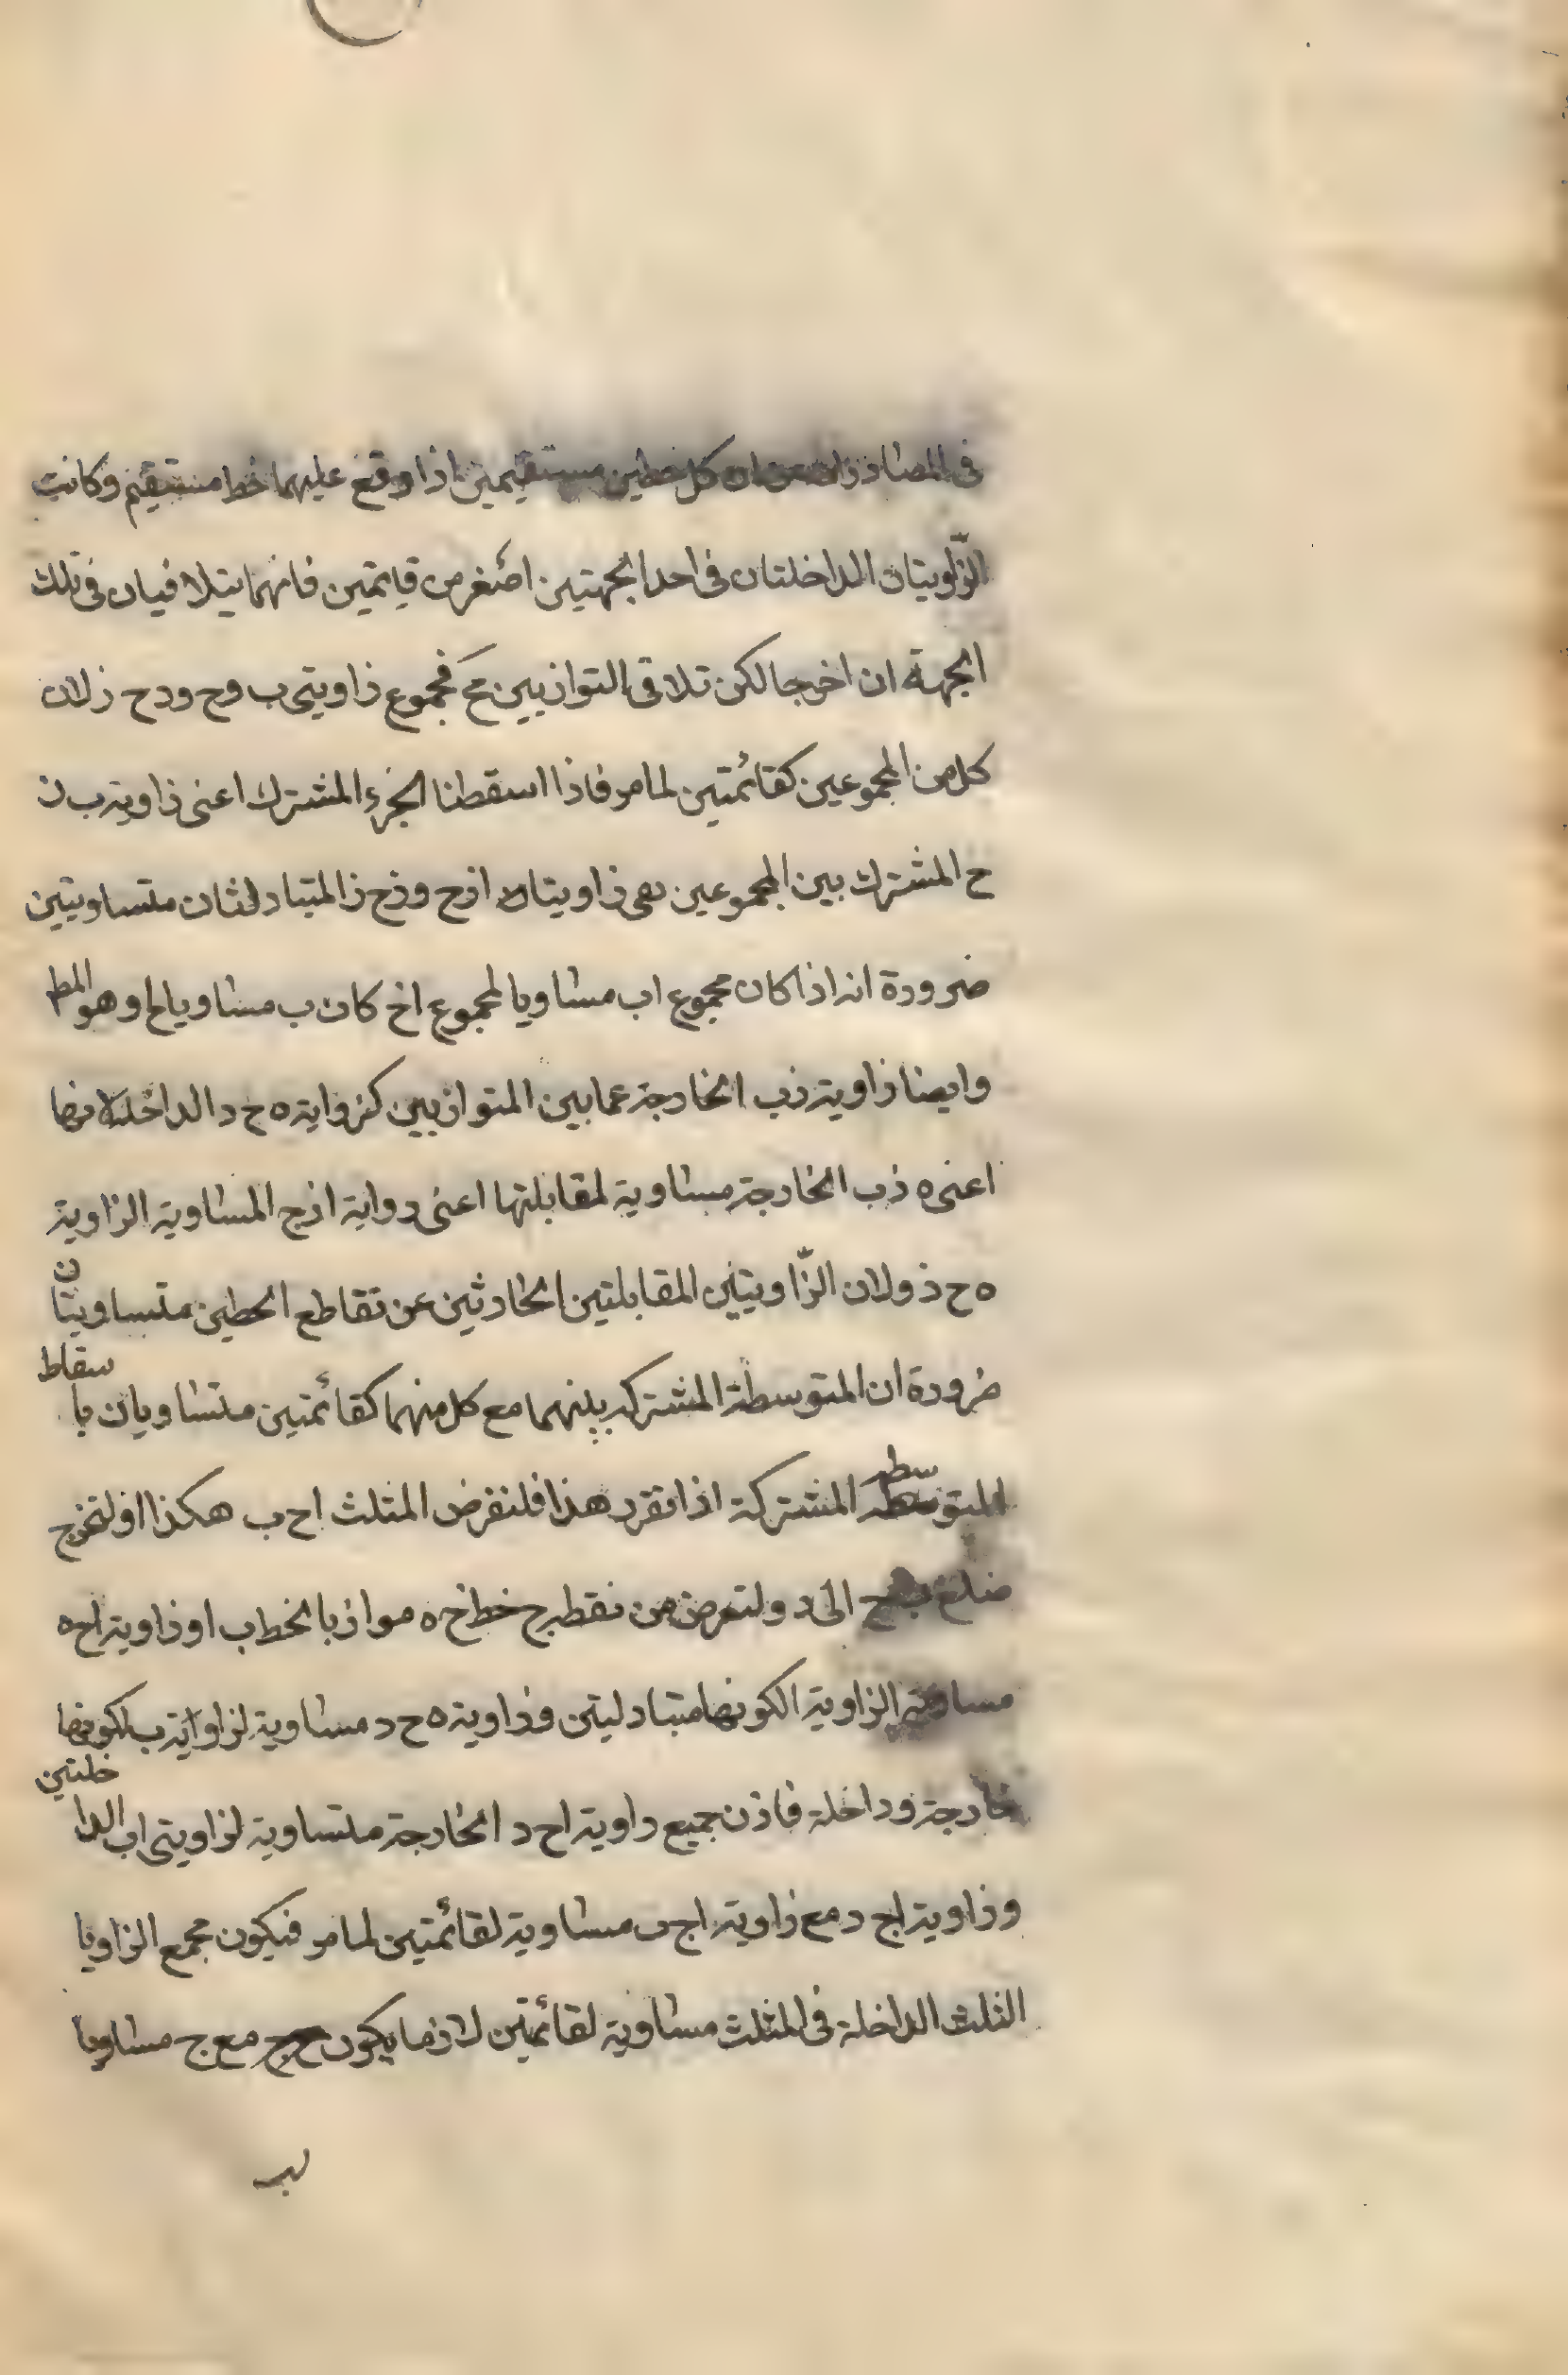 في المصادر ان كل خطين مستقيمين اذا وقع عليهما خط مستقيم وكانت
الزّاويتان الداخلتان في احد الجهتين اصغر من قايمتين فانهما يتلاقيان في تلك
الجهة ان اخرجا لكن تلاقي التوازيين مح فمجموع زاويتي ب وح ودح ز لان
كل من المجموعين كقائمتين لما مر فاذا اسقطنا الجزء المشترك اعني زاوية ب ز
ح المشترك بين المجموعين بقي زاويتان ازح وزح ز المتبادلتان متساويتين
ضرورة انه اذا كان مجموع اب مساويا لمجموع اخ كان ب مساويا لح وهو المط
وايضا زاوية زب الخارجة عما بين المتوازيين كزواية ه ح د الداخلة
اعني ه زب الخارجة مساوية لمقابلتها اعني دواية ازج المساوية الزاوية
ه ح ز ولان الزّاويتين المقابلتين الحادثين عن تقاطع الخطين متساويتان
ضرورة ان المتوسطة المشتركه بينهما مع كل منهما كقائمتين متساويان باسقاط
المتوسطه المشتركة اذا تقرد هذا فلنفرض المثلث اح ب هكذا اولتخرج
ضلع الى د ولتعرض من نقطه ح خط خ ه موازيا لخط اب او زاوية اح ه
مساوية الزاوية الكونها متبادليتن وزاوية ه ح د مساوية لزاواية ب لكونها
خارجة وداخلة فاذن جميع داوية اح د الخارجة متساوية لزاويتي اب الداخلتين
وزاوية اج د مع زاوية اج ب مساوية لقائمتين لما مر فيكون مجمع الزاويا
الثلث الداخلة في المثلث مساوية لقائمتين لان ما يكون مع ج مساويا
لب